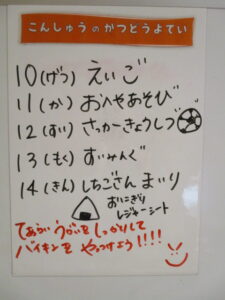 こんしゅうのかつどうよてい
10(げつ) えいご
11(か) おへやあそび
12(すい) さっかーきょうしつ
13(もく) すいみんぐ
14(きん) しちごさんまいり
おにぎり
レジャーシート
てあらいうがいをしっかりして
バイキンをやっつけよう!!!!